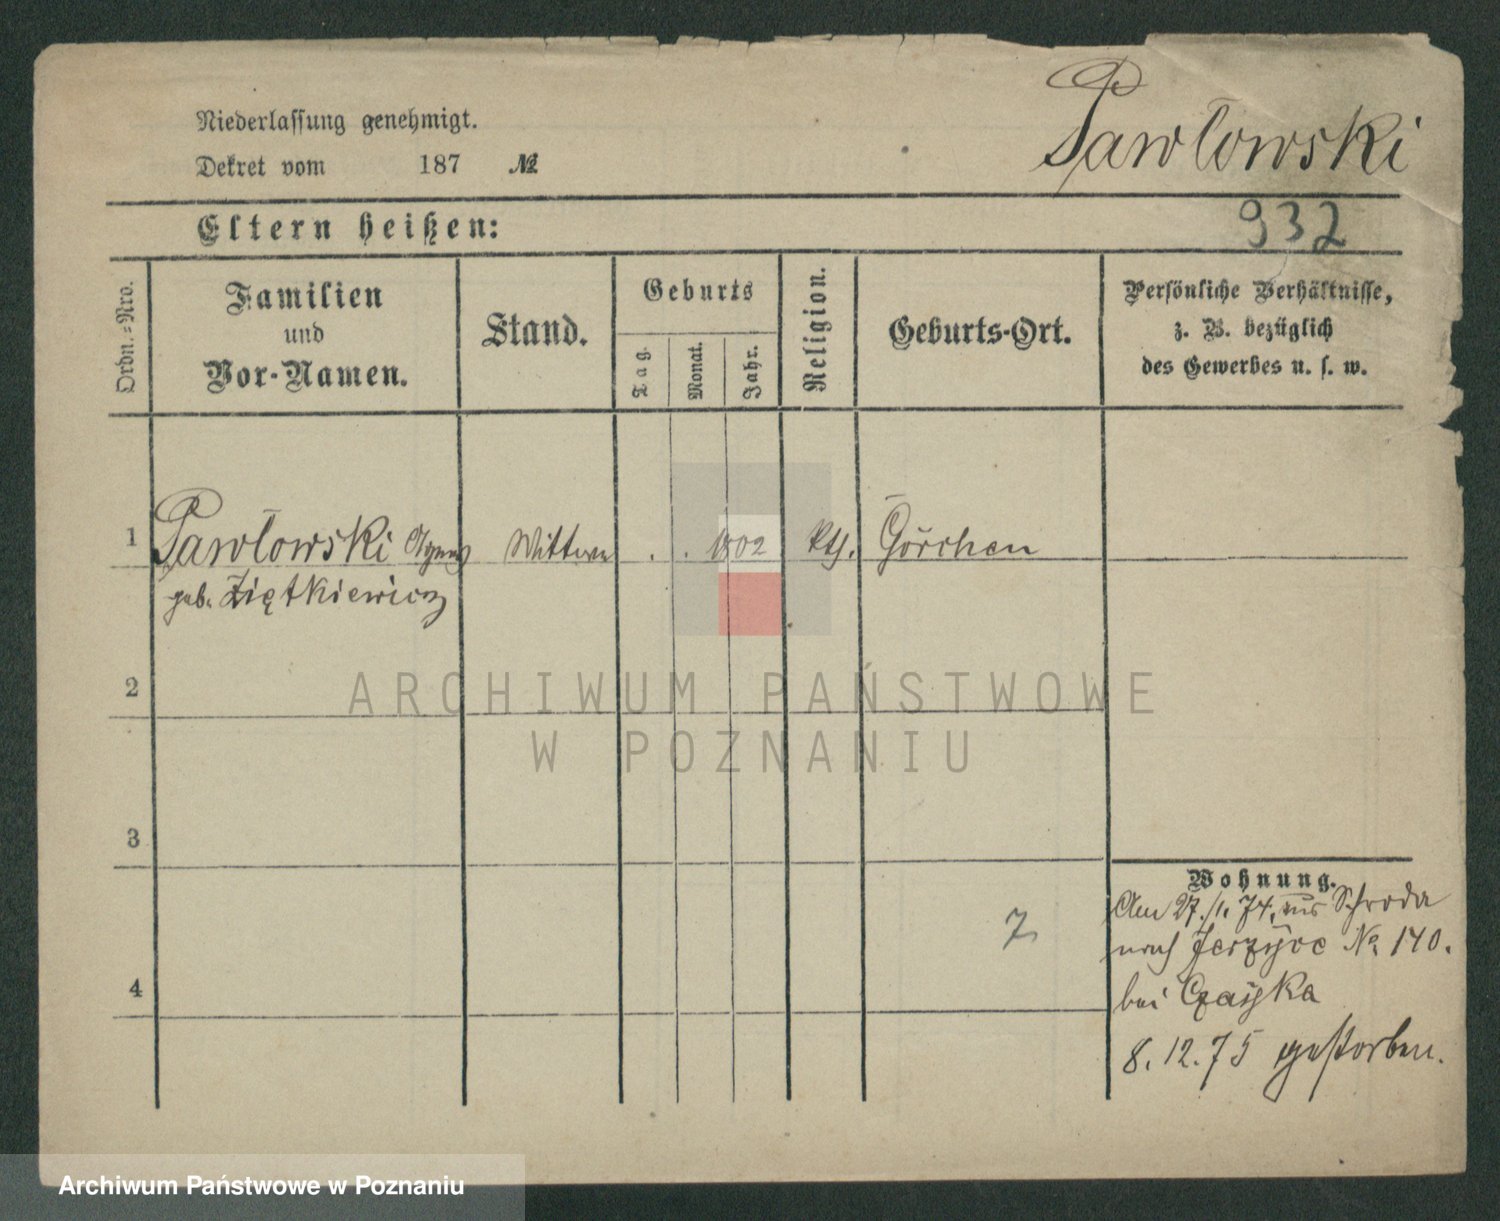 Niederlassung genehmigt.
Dekret vom 187 №
Pawłowski
932
Eltern heißen:
Ordn.=Nro.
Familien
und
Vor-Namen.
Stand.
Geburts
Tag.
Monat.
Jahr.
Religion.
Geburts-Ort.
Persönliche Verhältnisse,
z. B. bezüglich
des Gewerbes u. s. w.
1 Pawłowski Agnes Wittwe . . 1802 kth. Görchen
geb. Ziętkiewicz
2
ARCHIWUM PAŃSTWOWE
W POZNANIU
3
Wohnung.
Am 27./1. 74. aus Schroda
nach Jerzyce No. 140.
bei Czayka
8.12.75 gestorben.
7
4
Archiwum Państwowe w Poznaniu